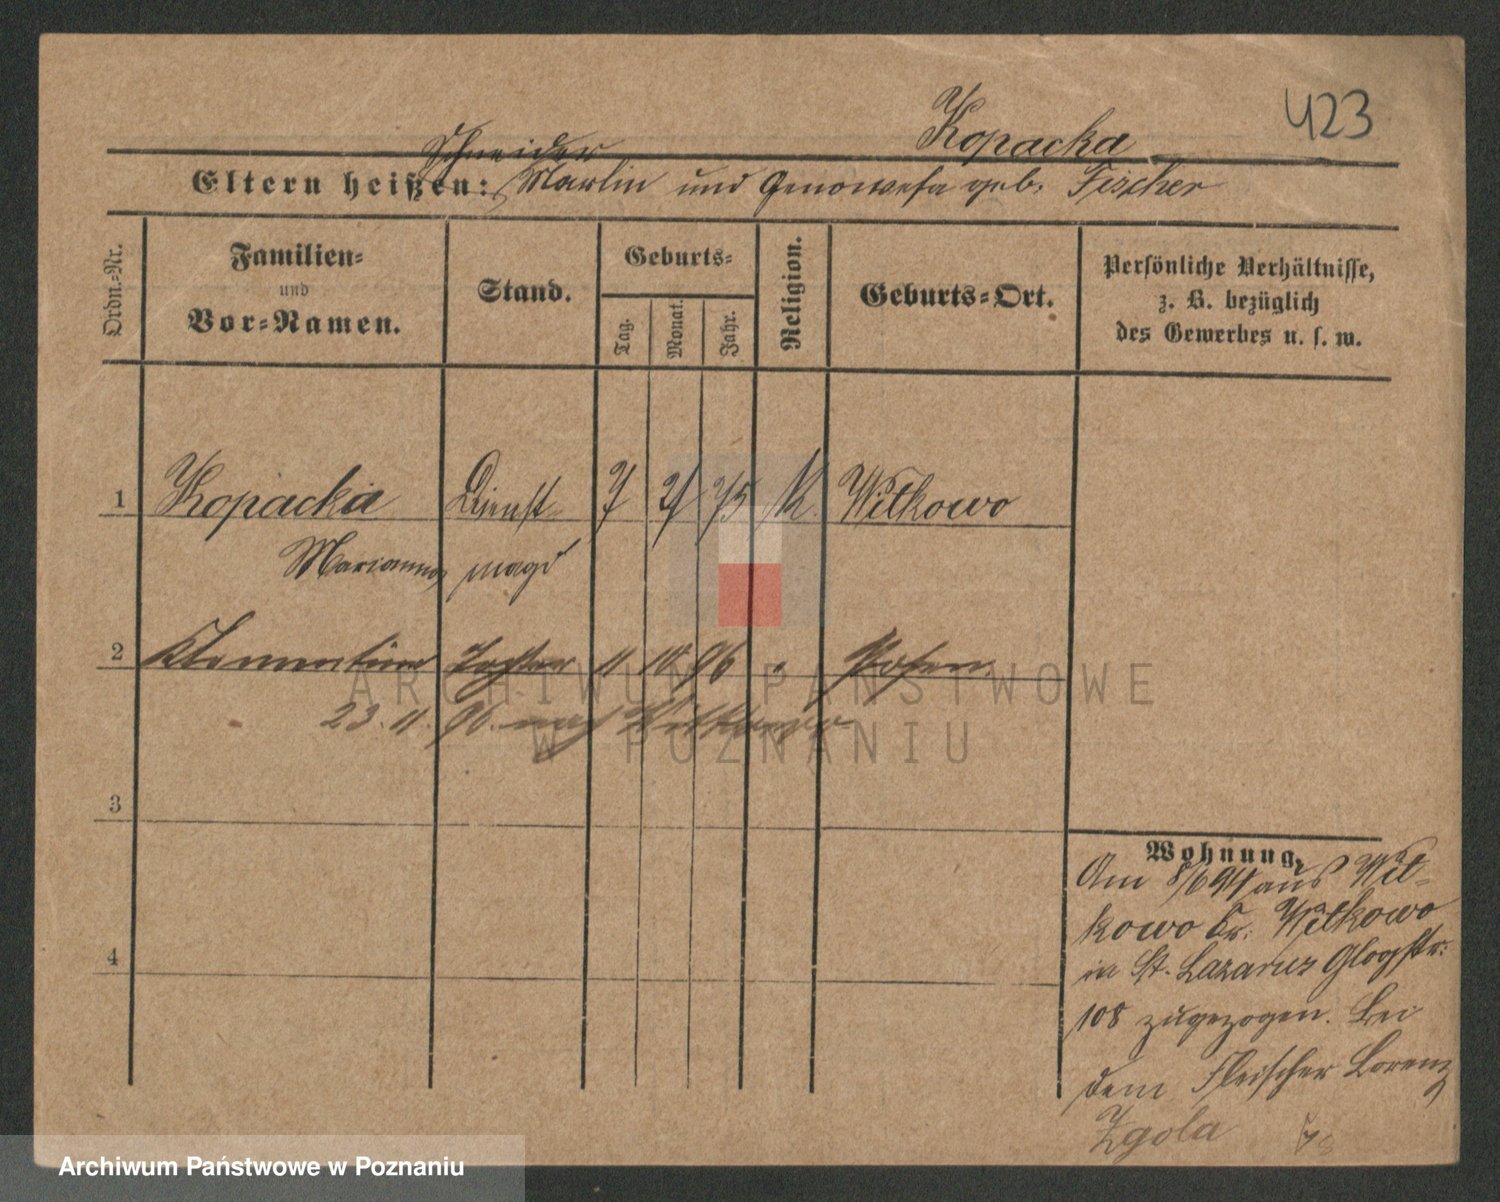 423
Kopacka
Schneider
Eltern heißen: Martin und Genowefa geb. Fischer
Ordn.-Nr.
Familien-
und
Vor-Namen.
Stand.
Geburts-
Tag.
Monat.
Jahr.
Religion.
Geburts-Ort.
Persönliche Verhältnisse,
z. B. bezüglich
des Gewerbes u. s. w.
1 Kopacka Dienst- 7 2 75 K. Witkowo
Marianna magd
2 Klementine Tochter 11 10 96 " Posen
23. 11. 96. nach Witkowo
3
4
Wohnung.
Am 8/6 94 aus Wit-
kowo Kr. Witkowo
in St. Lazarus Glogstr.
108 zugezogen. Bei
dem Fleischer Lorenz
Zgola
ARCHIWUM PAŃSTWOWE
W POZNANIU
Archiwum Państwowe w Poznaniu